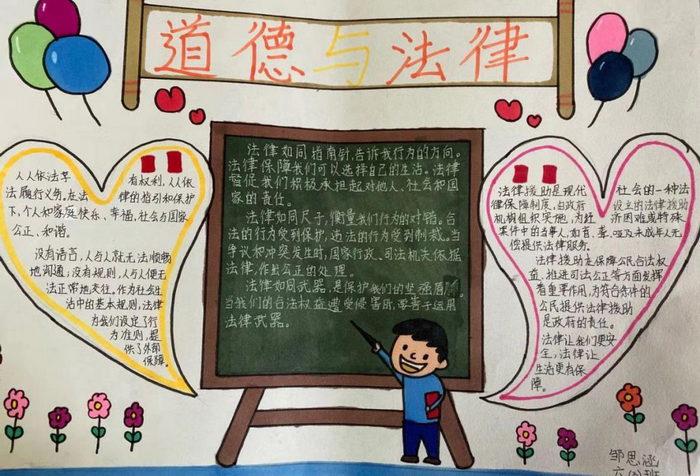 道德与法律
人人依法享
有权利，人人依
法履行义务。在法
律的指引和保护
下，个人和家庭快乐、幸福，社会与国家
公正、和谐。
没有语言，人与人就无法顺畅
地沟通，没有规则，人与人便无
法正常地交往。作为社会生
活中的基本规则，法律
为我们设定了行
为准则，提
供了外部
保障。
法律如同指南针，告诉我行为的方向。
法律保障我们可以选择自己的生活。法律
督促我们积极承担起对他人、社会和国
家的责任。
法律如同尺子，衡量我们行为的对错。合
法的行为受到保护，违法的行为受到制裁。当
争议和冲突发生时，国家行政、司法机关依据
法律，作出公正的处理。
法律如同武器，是保护我们的坚强盾
当我们的合法权益遭受侵害时，要善于运用
法律武器。
法律援助是现代
社会的一种法
律保障制度，由政府
设立的法律援助
机构组织实施，为经
济困难或特殊
案件中的当事人，如盲、聋、哑及未成年人无
偿提供法律服务。
法律援助是保障公民合法权
益、推进司法公正等方面发挥
着重要作用，为符合条件的
公民提供法律援助
是政府的责任。
法律让我们更安
全，法律让
生活更有保
障。
邹思涵
六(2)班